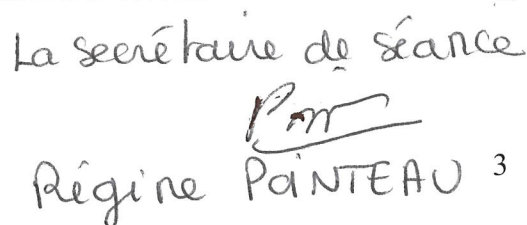 La secrétaire de séance
Régine POINTEAU 3